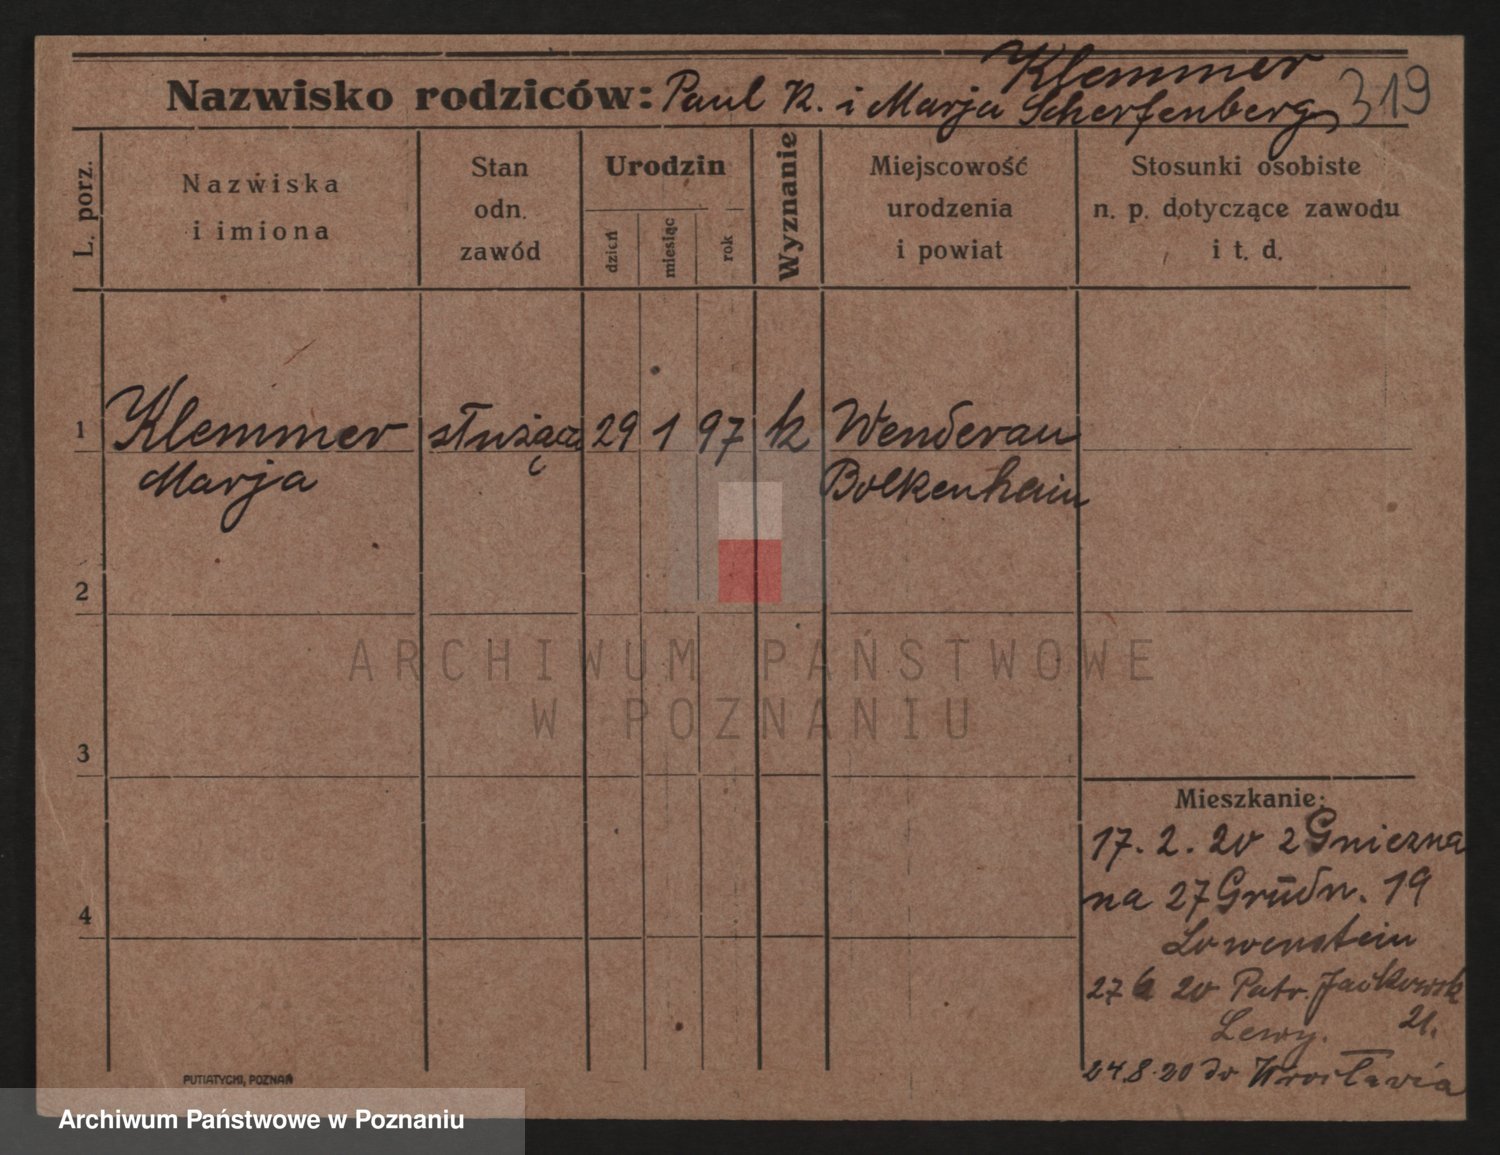 Klemmer
Nazwisko rodziców: Paul K. i Marja Scherfenberg 319
L. porz.
Nazwiska
i imiona
Stan
odn.
zawód
Urodzin
dzień
miesiąc
rok
Wyznanie
Miejscowość
urodzenia
i powiat
Stosunki osobiste
n. p. dotyczące zawodu
i t. d.
1 Klemmer służąca 29 1 97 k Wenderau
Marja Bolkenhain
2
ARCHIWUM PAŃSTWOWE
W POZNANIU
3
Mieszkanie:
17. 2. 20 z Gniezna
na 27 Grudn. 19
4
Lowenstein
27 20 Patr. Jackowsk
Lewy. 21.
24.8.20 do Wrocławia
PUTIATYCKI, POZNAŃ
Archiwum Państwowe w Poznaniu